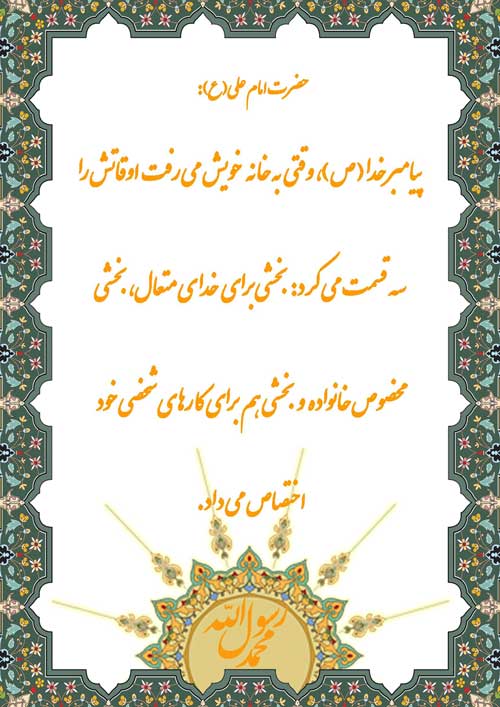 حضرت امام علی(ع):
پیامبر خدا (ص)، وقتی به خانه خویش می رفت اوقاتش را
سه قسمت می کرد: بخشی برای خدای متعال، بخشی
مخصوص خانواده و بخشی هم برای کارهای شخصی خود
اختصاص می داد.
محمد رسول الله